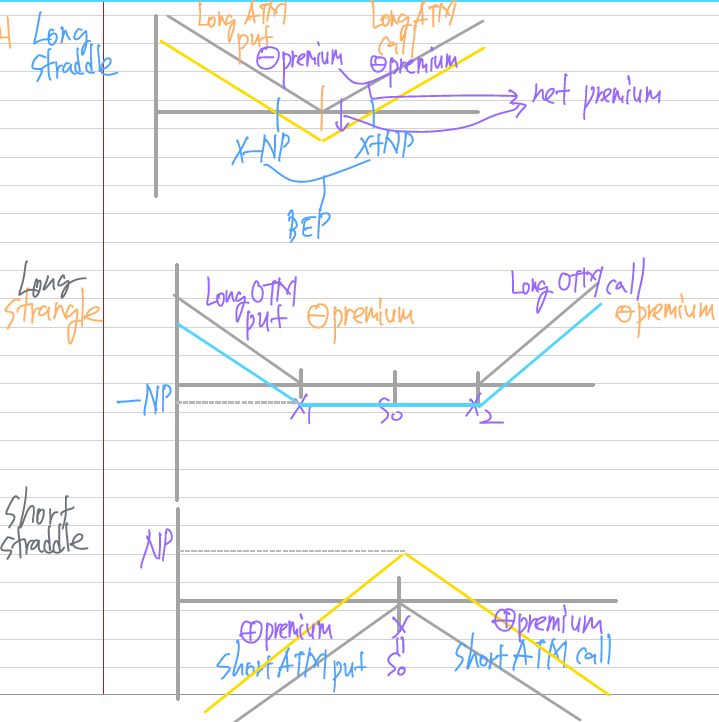 Long
straddle
Long ATM
put
Long ATM
call
⊖premium
⊕premium
net premium
X-NP
X+NP
BEP
Long
strangle
Long OTM
put
⊖premium
Long OTM call
⊖premium
-NP
X₁
S₀
X₂
short
straddle
NP
⊕premium
short ATM put
X
=
S₀
⊕premium
short ATM call